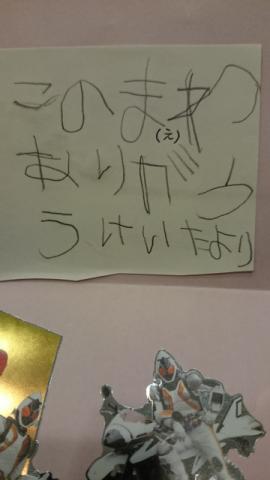 このま
(え)
ありがと
う けいたより